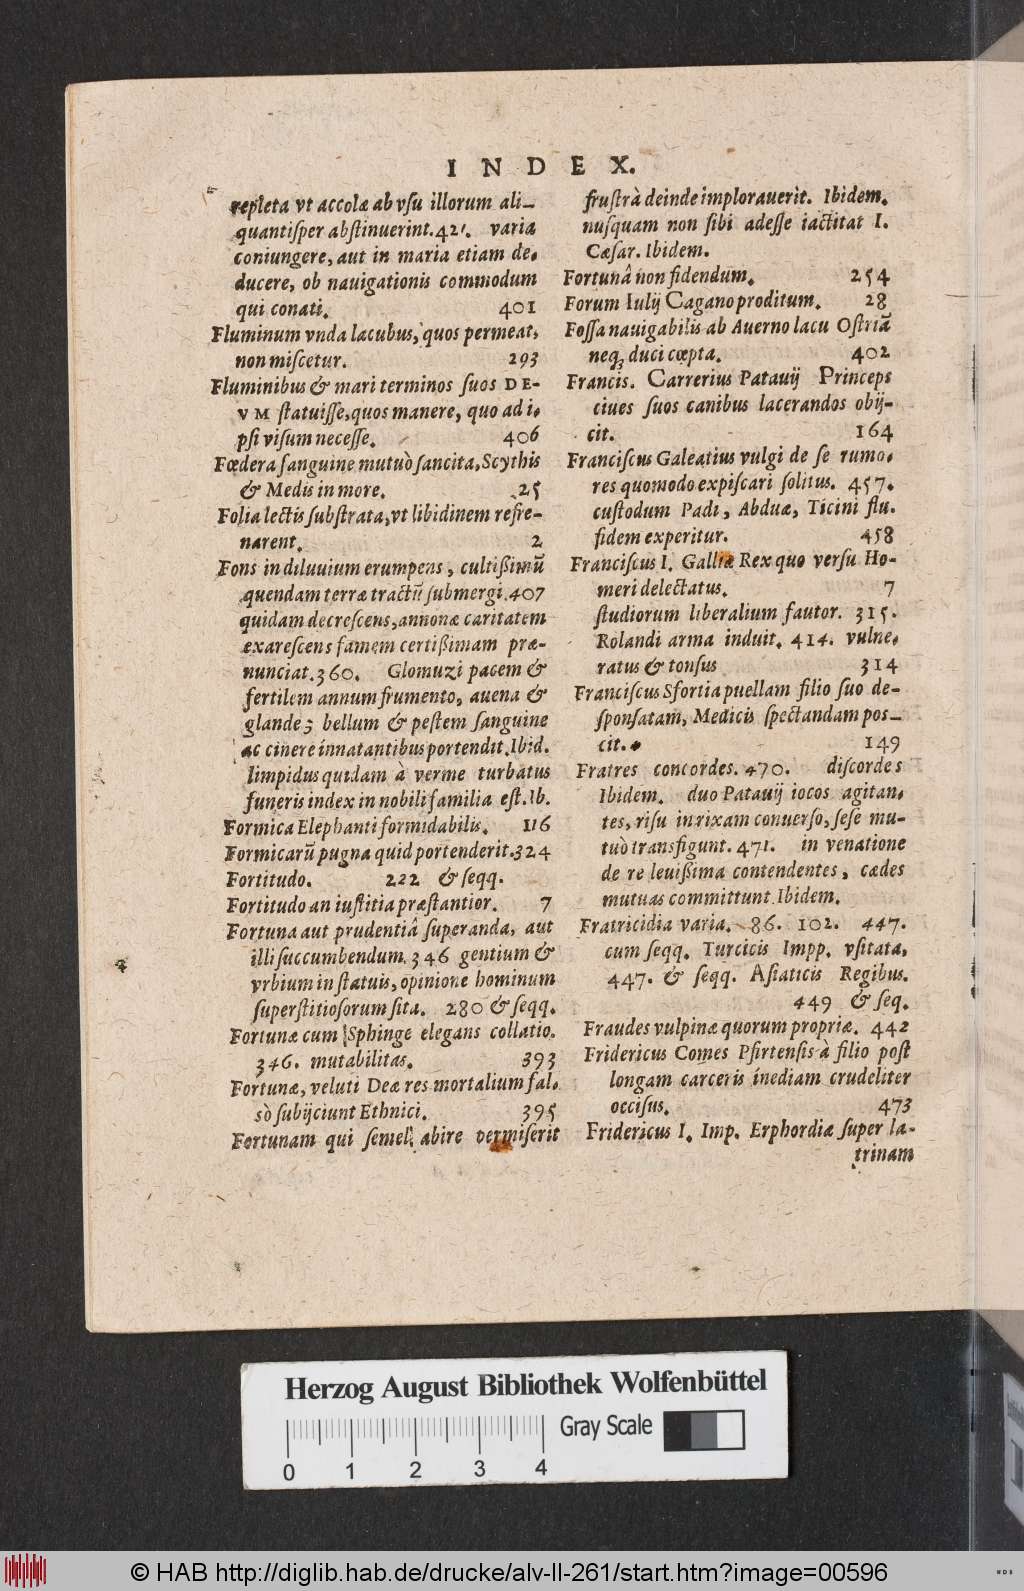 INDEX.
repleta vt accolæ ab vſu illorum ali-
quantiſper abſtinuerint. 421. varia
coniungere, aut in maria etiam de-
ducere, ob nauigationis commodum
qui conati. 401
Fluminum vnda lacubus, quos permeat,
non miſcetur. 293
Fluminibus & mari terminos ſuos DE-
VM ſtatuiſſe, quos manere, quo ad i-
pſi viſum neceſſe. 406
Fœdera ſanguine mutuò ſancita, Scythis
& Medis in more. 25
Folia lectis ſubſtrata, vt libidinem refre-
narent. 2
Fons in diluuium erumpens, cultißimũ
quendam terræ tractũ ſubmergi. 407
quidam decreſcens, annonæ caritatem
exareſcens famem certißimam præ-
nunciat. 360. Glomuzi pacem &
fertilem annum frumento, auena &
glande; bellum & peſtem ſanguine
ac cinere innatantibus portendit. Ibid.
limpidus quidam à verme turbatus
funeris index in nobili familia eſt. Ib.
Formica Elephanti formidabilis. 116
Formicarũ pugna quid portenderit. 324
Fortitudo. 222 & ſeqq.
Fortitudo an iuſtitia præſtantior. 7
Fortuna aut prudentiâ ſuperanda, aut
illi ſuccumbendum. 346 gentium &
vrbium in ſtatuis, opinione hominum
ſuperſtitioſorum ſita. 280 & ſeqq.
Fortunæ cum Sphinge elegans collatio.
346. mutabilitas. 393
Fortunæ, veluti Deæ res mortalium fal-
sò ſubijciunt Ethnici. 395
Fortunam qui ſemel abire permiſerit
fruſtrà deinde implorauerit. Ibidem.
nuſquam non ſibi adeſſe iactitat I.
Cæſar. Ibidem.
Fortunâ non fidendum. 254
Forum Iulij Cagano proditum. 28
Foſſa nauigabilis ab Auerno lacu Oſtriã
neq; duci cœpta. 402
Francis. Carrerius Patauij Princeps
ciues ſuos canibus lacerandos obij-
cit. 164
Franciſcus Galeatius vulgi de ſe rumo-
res quomodo expiſcari ſolitus. 457.
cuſtodum Padi, Abduæ, Ticini flu.
fidem experitur. 458
Franciſcus I. Galliæ Rex quo verſu Ho-
meri delectatus. 7
ſtudiorum liberalium fautor. 315.
Rolandi arma induit. 414. vulne-
ratus & tonſus 314
Franciſcus Sfortia puellam filio ſuo de-
ſponſatam, Medicis ſpectandam pos-
cit. 149
Fratres concordes. 470. diſcordes
Ibidem. duo Patauij iocos agitan-
tes, riſu in rixam conuerſo, ſeſe mu-
tuò transfigunt. 471. in venatione
de re leuißima contendentes, cædes
mutuas committunt. Ibidem.
Fratricidia varia. 86. 102. 447.
cum ſeqq. Turcicis Impp. vſitata,
447. & ſeqq. Aſiaticis Regibus.
449 & ſeq.
Fraudes vulpinæ quorum propriæ. 442
Fridericus Comes Pfirtenſis à filio poſt
longam carceris inediam crudeliter
occiſus. 473
Fridericus I. Imp. Erphordiæ ſuper la-
trinam
Herzog August Bibliothek Wolfenbüttel
Gray Scale
0 1 2 3 4
© HAB http://diglib.hab.de/drucke/alv-ll-261/start.htm?image=00596